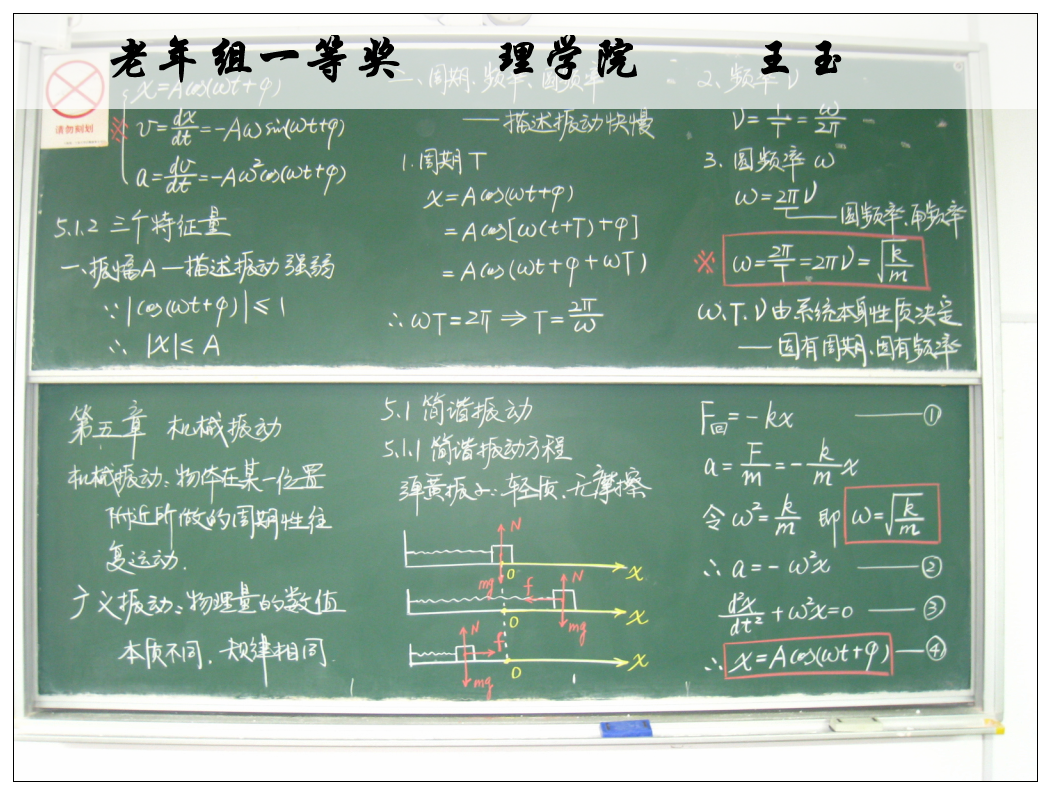 老年组一等奖 理学院 王玉
请勿刻划
x=Acos(ωt+φ)
※ v=dx/dt=-Aωsin(ωt+φ)
a=dv/dt=-Aω²cos(ωt+φ)
5.1.2 三个特征量
一、振幅A—描述振动强弱
∵|cos(ωt+φ)|≤1
∴ |x|≤A
二、周期、频率、圆频率
——描述振动快慢
1.周期T
x=Acos(ωt+φ)
=Acos[ω(t+T)+φ]
=Acos(ωt+φ+ωT)
∴ωT=2π⇒T=2π/ω
2、频率ν
ν=1/T=ω/2π
3.圆频率ω
ω=2πν
——圆频率、角频率
※ ω=2π/T=2πν=√(k/m)
ω、T、ν由系统本身性质决定
——固有周期、固有频率
第五章 机械振动
机械振动:物体在某一位置
附近所做的周期性往
复运动.
广义振动:物理量的数值
本质不同,规律相同.
5.1 简谐振动
5.1.1简谐振动方程
弹簧振子:轻质、无摩擦
N
mg
O
x
N
f
mg
O
x
N
f
mg
O
x
F回=-kx ——①
a=F/m=-k/m x
令ω²=k/m 即 ω=√(k/m)
∴a=-ω²x ——②
d²x/dt²+ω²x=0 ——③
∴ x=Acos(ωt+φ) —④